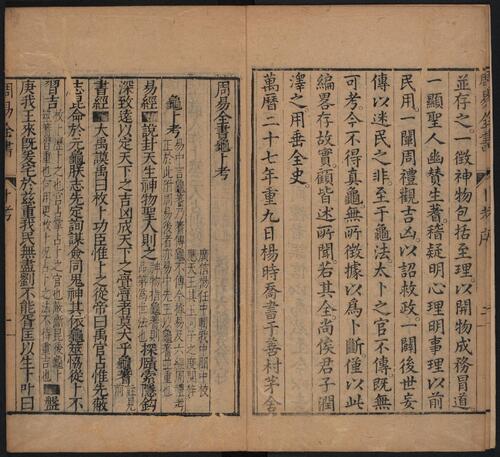 並存之一徵神物包括至理以開物成務冒道
一顯聖人幽贊生蓍稽疑明心理明事理以前
民用一闢周禮觀吉凶以詔救政一闢後世妄
傳以迷民之非至于龜法太卜之官不傳既無
可考今不得真龜無所徵據以為卜斷僅以此
編畧存故常顧皆述所聞若其全尚俟君子潤
澤之用垂全史
萬曆二十七年重九日楊時喬書于善村茅舍
周易全書龜卜考
龜卜考
易經說卦天生神物聖人則之
探賾索隱鈎
深致遠以定天下之吉凶成天下之亹亹者莫大乎蓍龜
書經大禹謨禹曰枚卜功臣惟卜之從帝曰禹官占惟先蔽
志昆命于元龜朕志先定詢謀僉同鬼神其依龜筮恊從卜不
習吉
盤
庚我王來既爰宅於茲重我民無盡劉不能胥匡以生卜叶曰
周易全書
卜考